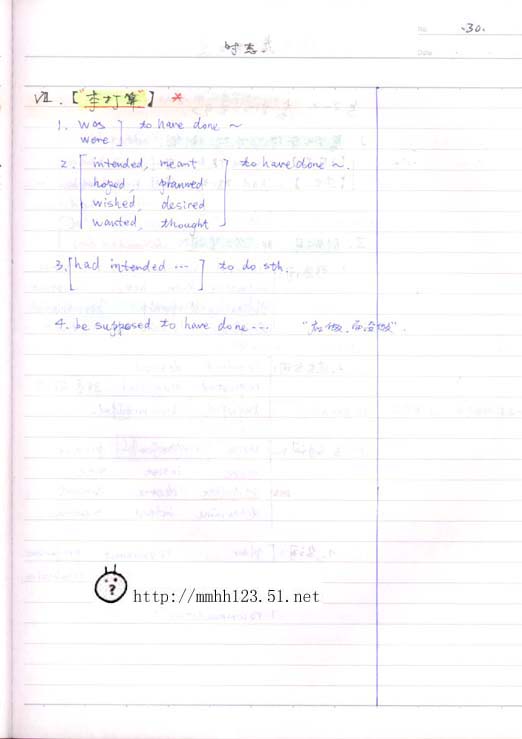 No. -30.
Date
时态
VII. 【"本打算"】 *
1. was
were ] to have done ~
2. [ intended, meant ] to have done ~.
hoped, planned
wished, desired
wanted, thought
3. [had intended ... ] to do sth.
4. be supposed to have done ... "应做, 而没做".
http://mmhh123.51.net